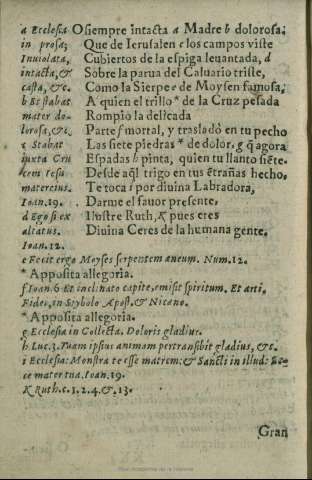 a Ecclesia O siempre intacta a Madre b dolorosa;
in prosa; Que de Ierusalen c los campos viste
Inuiolata, Cubiertos de la espiga leuantada, d
intacta, & Sobre la parua del Caluario triste,
casta, &c. Como la Sierpe e de Moysen famosa;
b Et stabat A quien el trillo * de la Cruz pesada
mater do- Rompiò la delicada
lorosa, &c. Parte f mortal, y trasladò en tu pecho
c Stabat Las siete piedras * de dolor, g q̃ agora
iuxta Cru Espadas h pinta, quien tu llanto siẽte.
cem Iesu Desde aq̃l trigo en tus ẽtrañas hecho,
mater eius. Te toca i por diuina Labradora,
Ioan. 19. Darme el fauor presente,
d Ego si ex Ilustre Ruth, K pues eres
altatus. Diuina Ceres de la humana gente.
Ioan. 12.
e Fecit ergo Moyses serpentem æneum. Num. 12.
* Apposita allegoria.
f Ioan. 6 Et inclinato capite, emisit spiritum. Et arti.
Fidei, in Sỹbolo Apost, & Nicæno.
* Apposita allegoria.
g Ecclesia in Collecta. Doloris gladius.
h Luc. 2. Tuam ipsius animam pertransibit gladius, &c.
i Ecclesia: Monstra te esse matrem: & Sancti in illud: Ec-
ce mater tua. Ioan. 19.
K Ruth. c. 1. 2. 4. & 13.
Gran